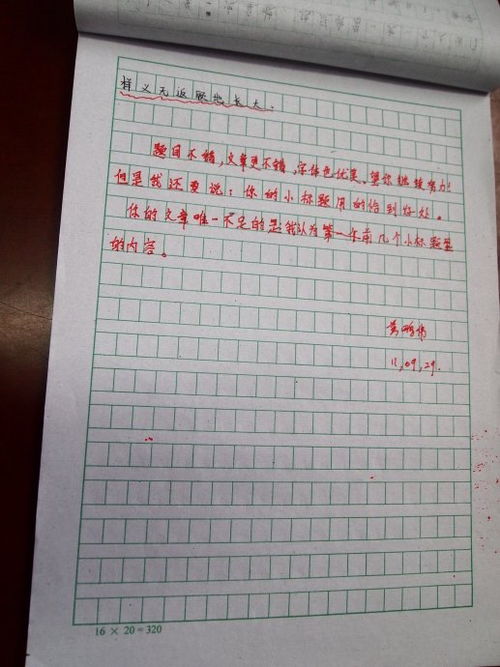 样义无返顾地长大。
题目不错，文章更不错，字体也优美，望你继续努力！
但是我还要说：你的小标题用的恰到好处。
你的文章唯一不足的是：我认为第一年有几个小标题里
的内容。
11,09,29.
16 × 20 = 320